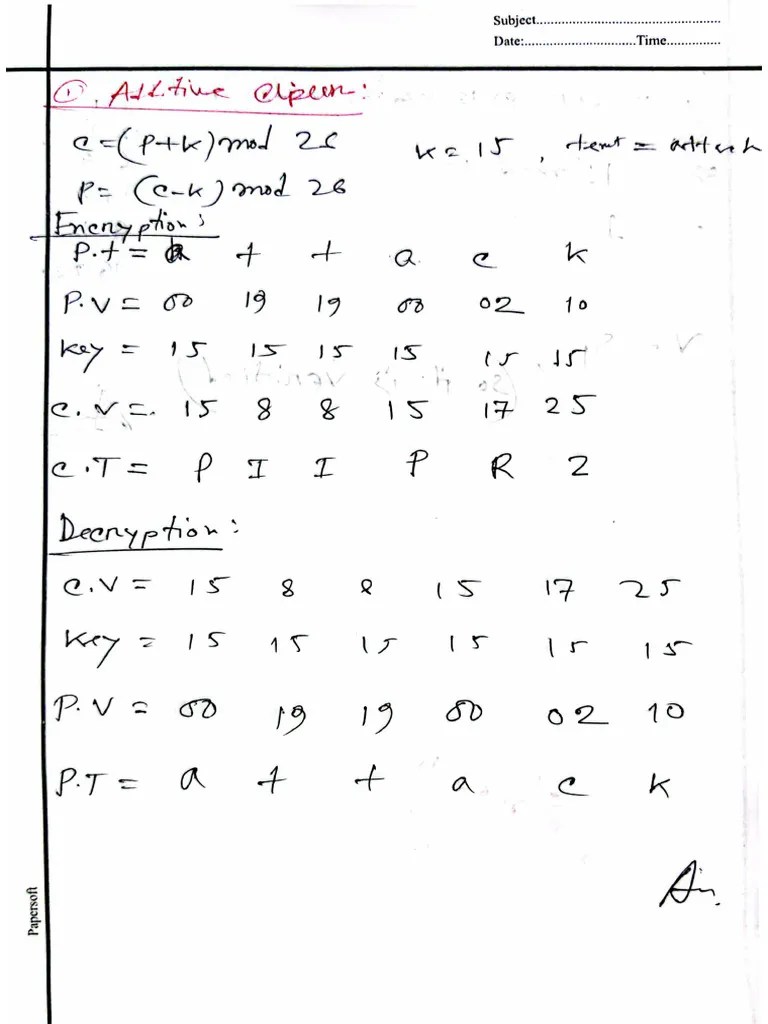 Subject.....................................................
Date:................................Time...............
①. Additive Cipher:
C=(P+K)mod 26 K=15, text = attack
P= (C-K)mod 26
Encryption:
P.t = a t t a c k
P.V = 00 19 19 00 02 10
Key = 15 15 15 15 15 15
C.V =. 15 8 8 15 17 25
C.T = P I I P R Z
Decryption:
C.V = 15 8 8 15 17 25
Key = 15 15 15 15 15 15
P.V = 00 19 19 00 02 10
P.T = a t t a c k
Papersoft